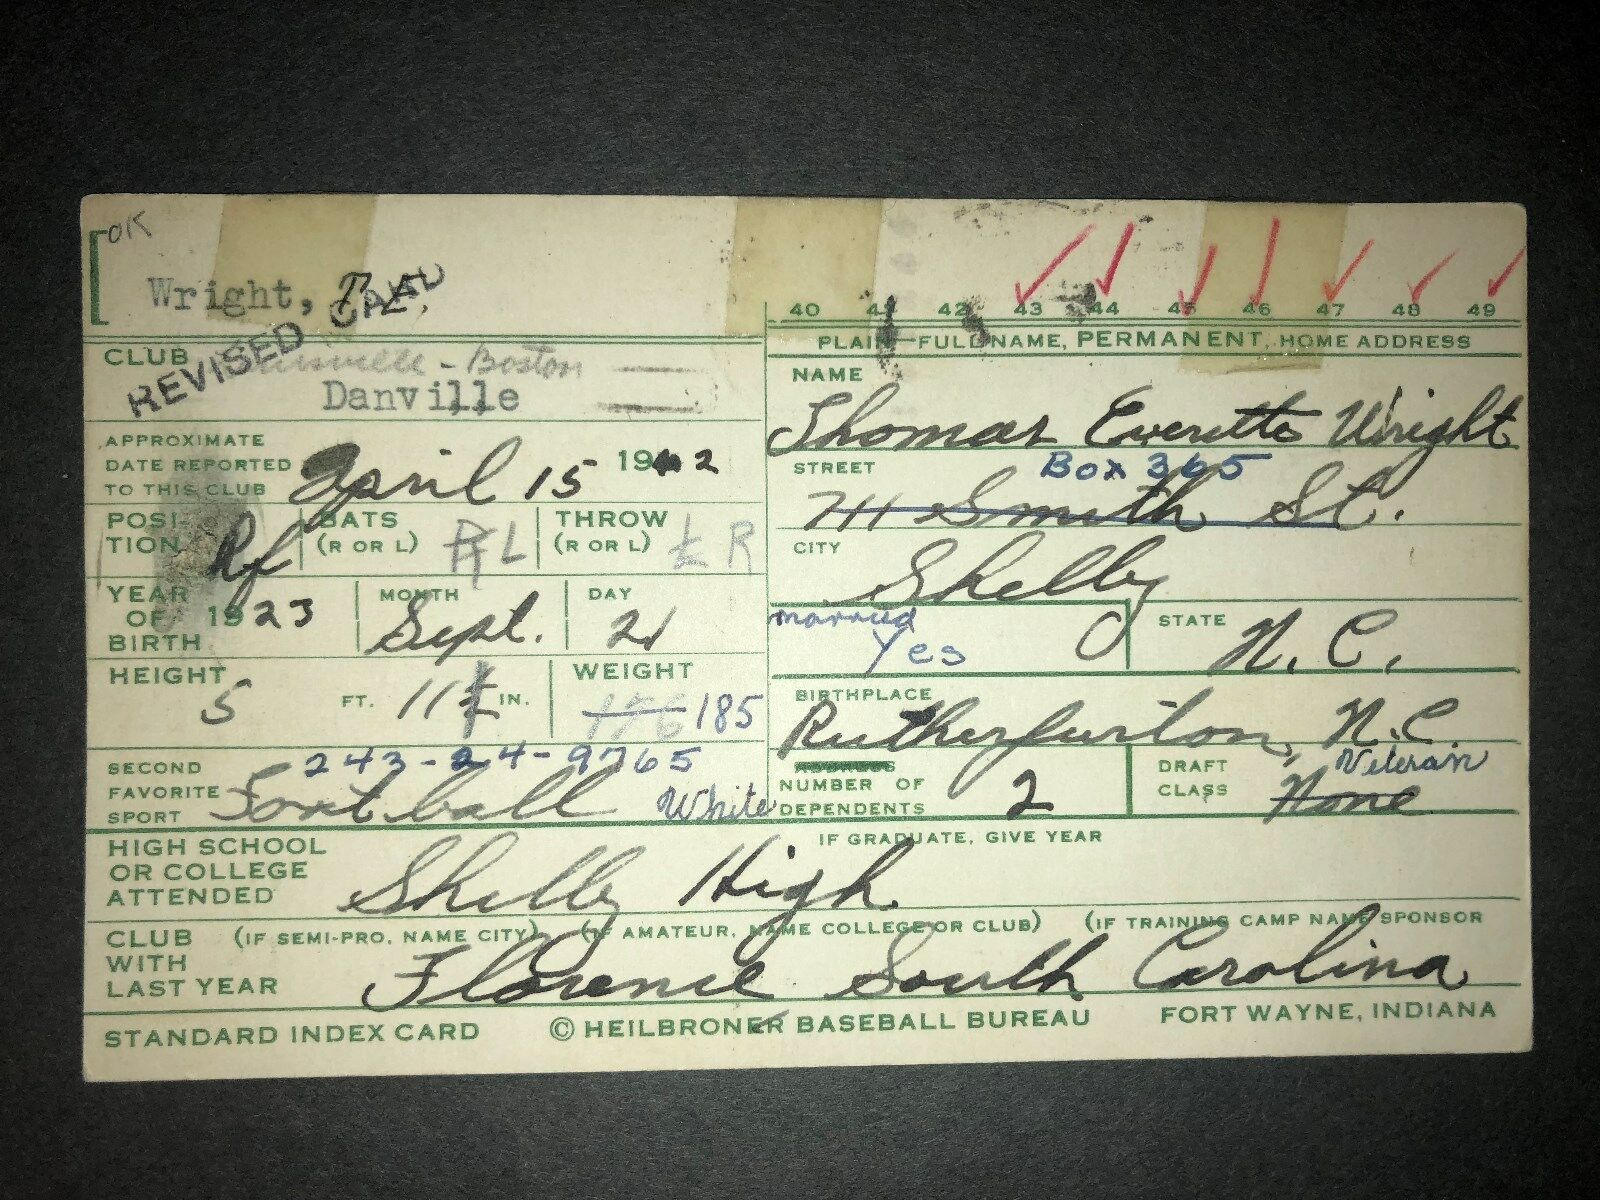 OK
Wright, T. E.
REVISED CARD
40 41 42 43 44 45 46 47 48 49
PLAIN FULL NAME, PERMANENT, HOME ADDRESS
CLUB Louisville - Boston
Danville
NAME
Thomas Everette Wright
APPROXIMATE
DATE REPORTED
TO THIS CLUB April 15 1942
STREET Box 365
711 Smith St.
POSI-
TION Rf
BATS
(R OR L) R L
THROW
(R OR L) L R
CITY
Shelby
YEAR
OF
BIRTH 1923
MONTH
Sept.
DAY
21
married
Yes
STATE
N. C.
HEIGHT
5 FT. 11 1/2 IN.
WEIGHT
176 185
BIRTHPLACE
Rutherfurton, N.C.
243-24-9765
SECOND
FAVORITE
SPORT Foot ball White
ADDRESS
NUMBER OF
DEPENDENTS 2
DRAFT
CLASS Veteran
None
HIGH SCHOOL
OR COLLEGE
ATTENDED Shelby High
IF GRADUATE, GIVE YEAR
CLUB
WITH
LAST YEAR
(IF SEMI-PRO, NAME CITY) (IF AMATEUR, NAME COLLEGE OR CLUB) (IF TRAINING CAMP NAME SPONSOR
Florence South Carolina
STANDARD INDEX CARD © HEILBRONER BASEBALL BUREAU FORT WAYNE, INDIANA